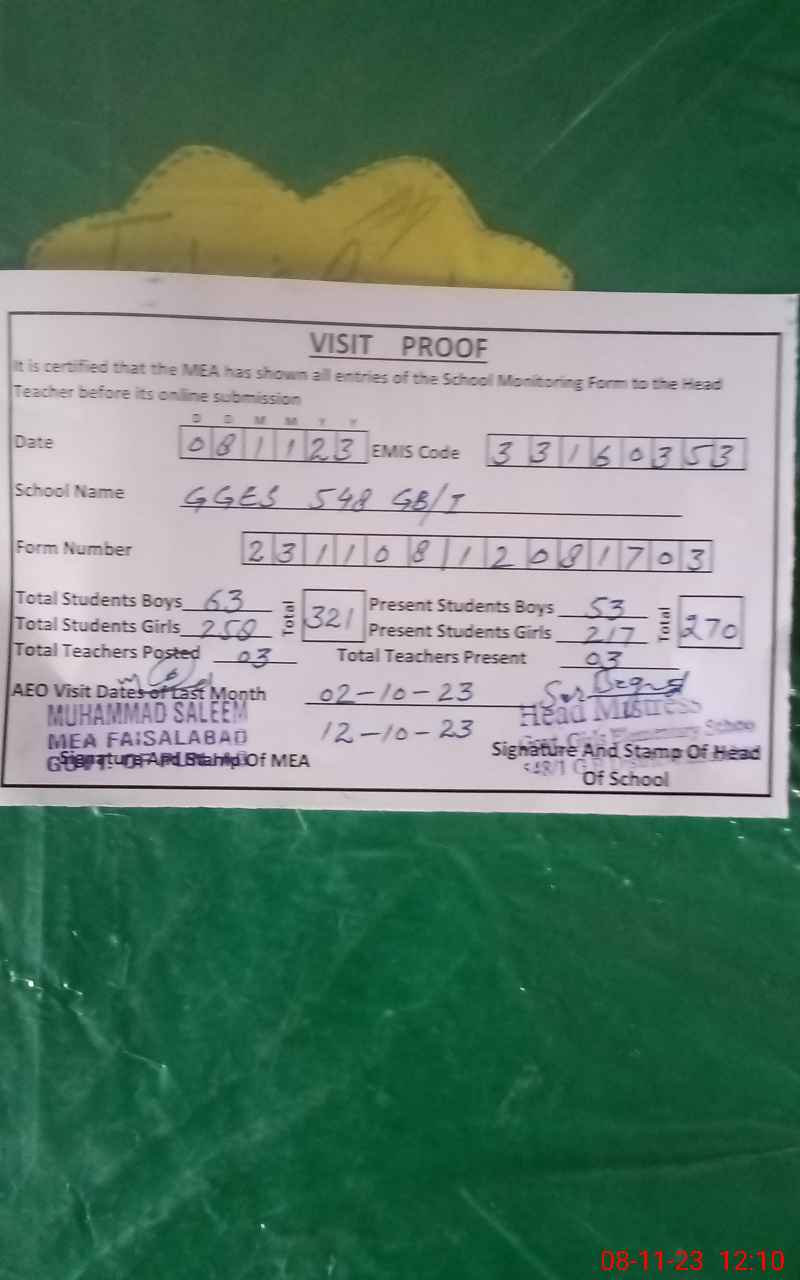 VISIT PROOF
It is certified that the MEA has shown all entries of the School Monitoring Form to the Head
Teacher before its online submission
D D M M Y Y
Date 081123 EMIS Code 33160353
School Name GGES 548 GB/I
Form Number 23110812081703
Total Students Boys 63 Total 321 Present Students Boys 53 Total 270
Total Students Girls 258 Present Students Girls 217
Total Teachers Posted 03 Total Teachers Present 03
AEO Visit Dates of Last Month 02-10-23
12-10-23
MUHAMMAD SALEEM
MEA FAISALABAD
Signature And Stamp Of MEA
Head Mistress
Govt. Girls Elementary School
Signature And Stamp Of Head
Of School
08-11-23 12:10